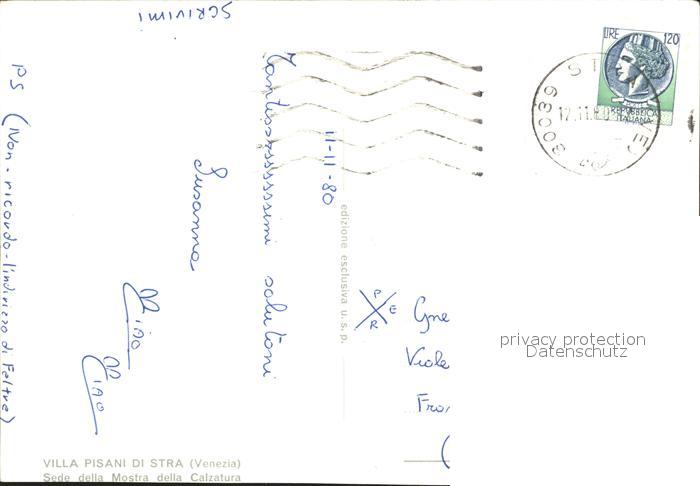 11-11-80
Tantissssssssssimi salutoni
Susanna
Ciao
Ciao
SCRIVIMI
PS (Non-ricordo-l'indirizzo di Feltre)
PER
Viale
LIRE 120
REPUBBLICA
ITALIANA
30039 STRA (VE)
12.11.80
edizione esclusiva u.s.p.
privacy protection
Datenschutz
VILLA PISANI DI STRA (Venezia)
Sede della Mostra della Calzatura